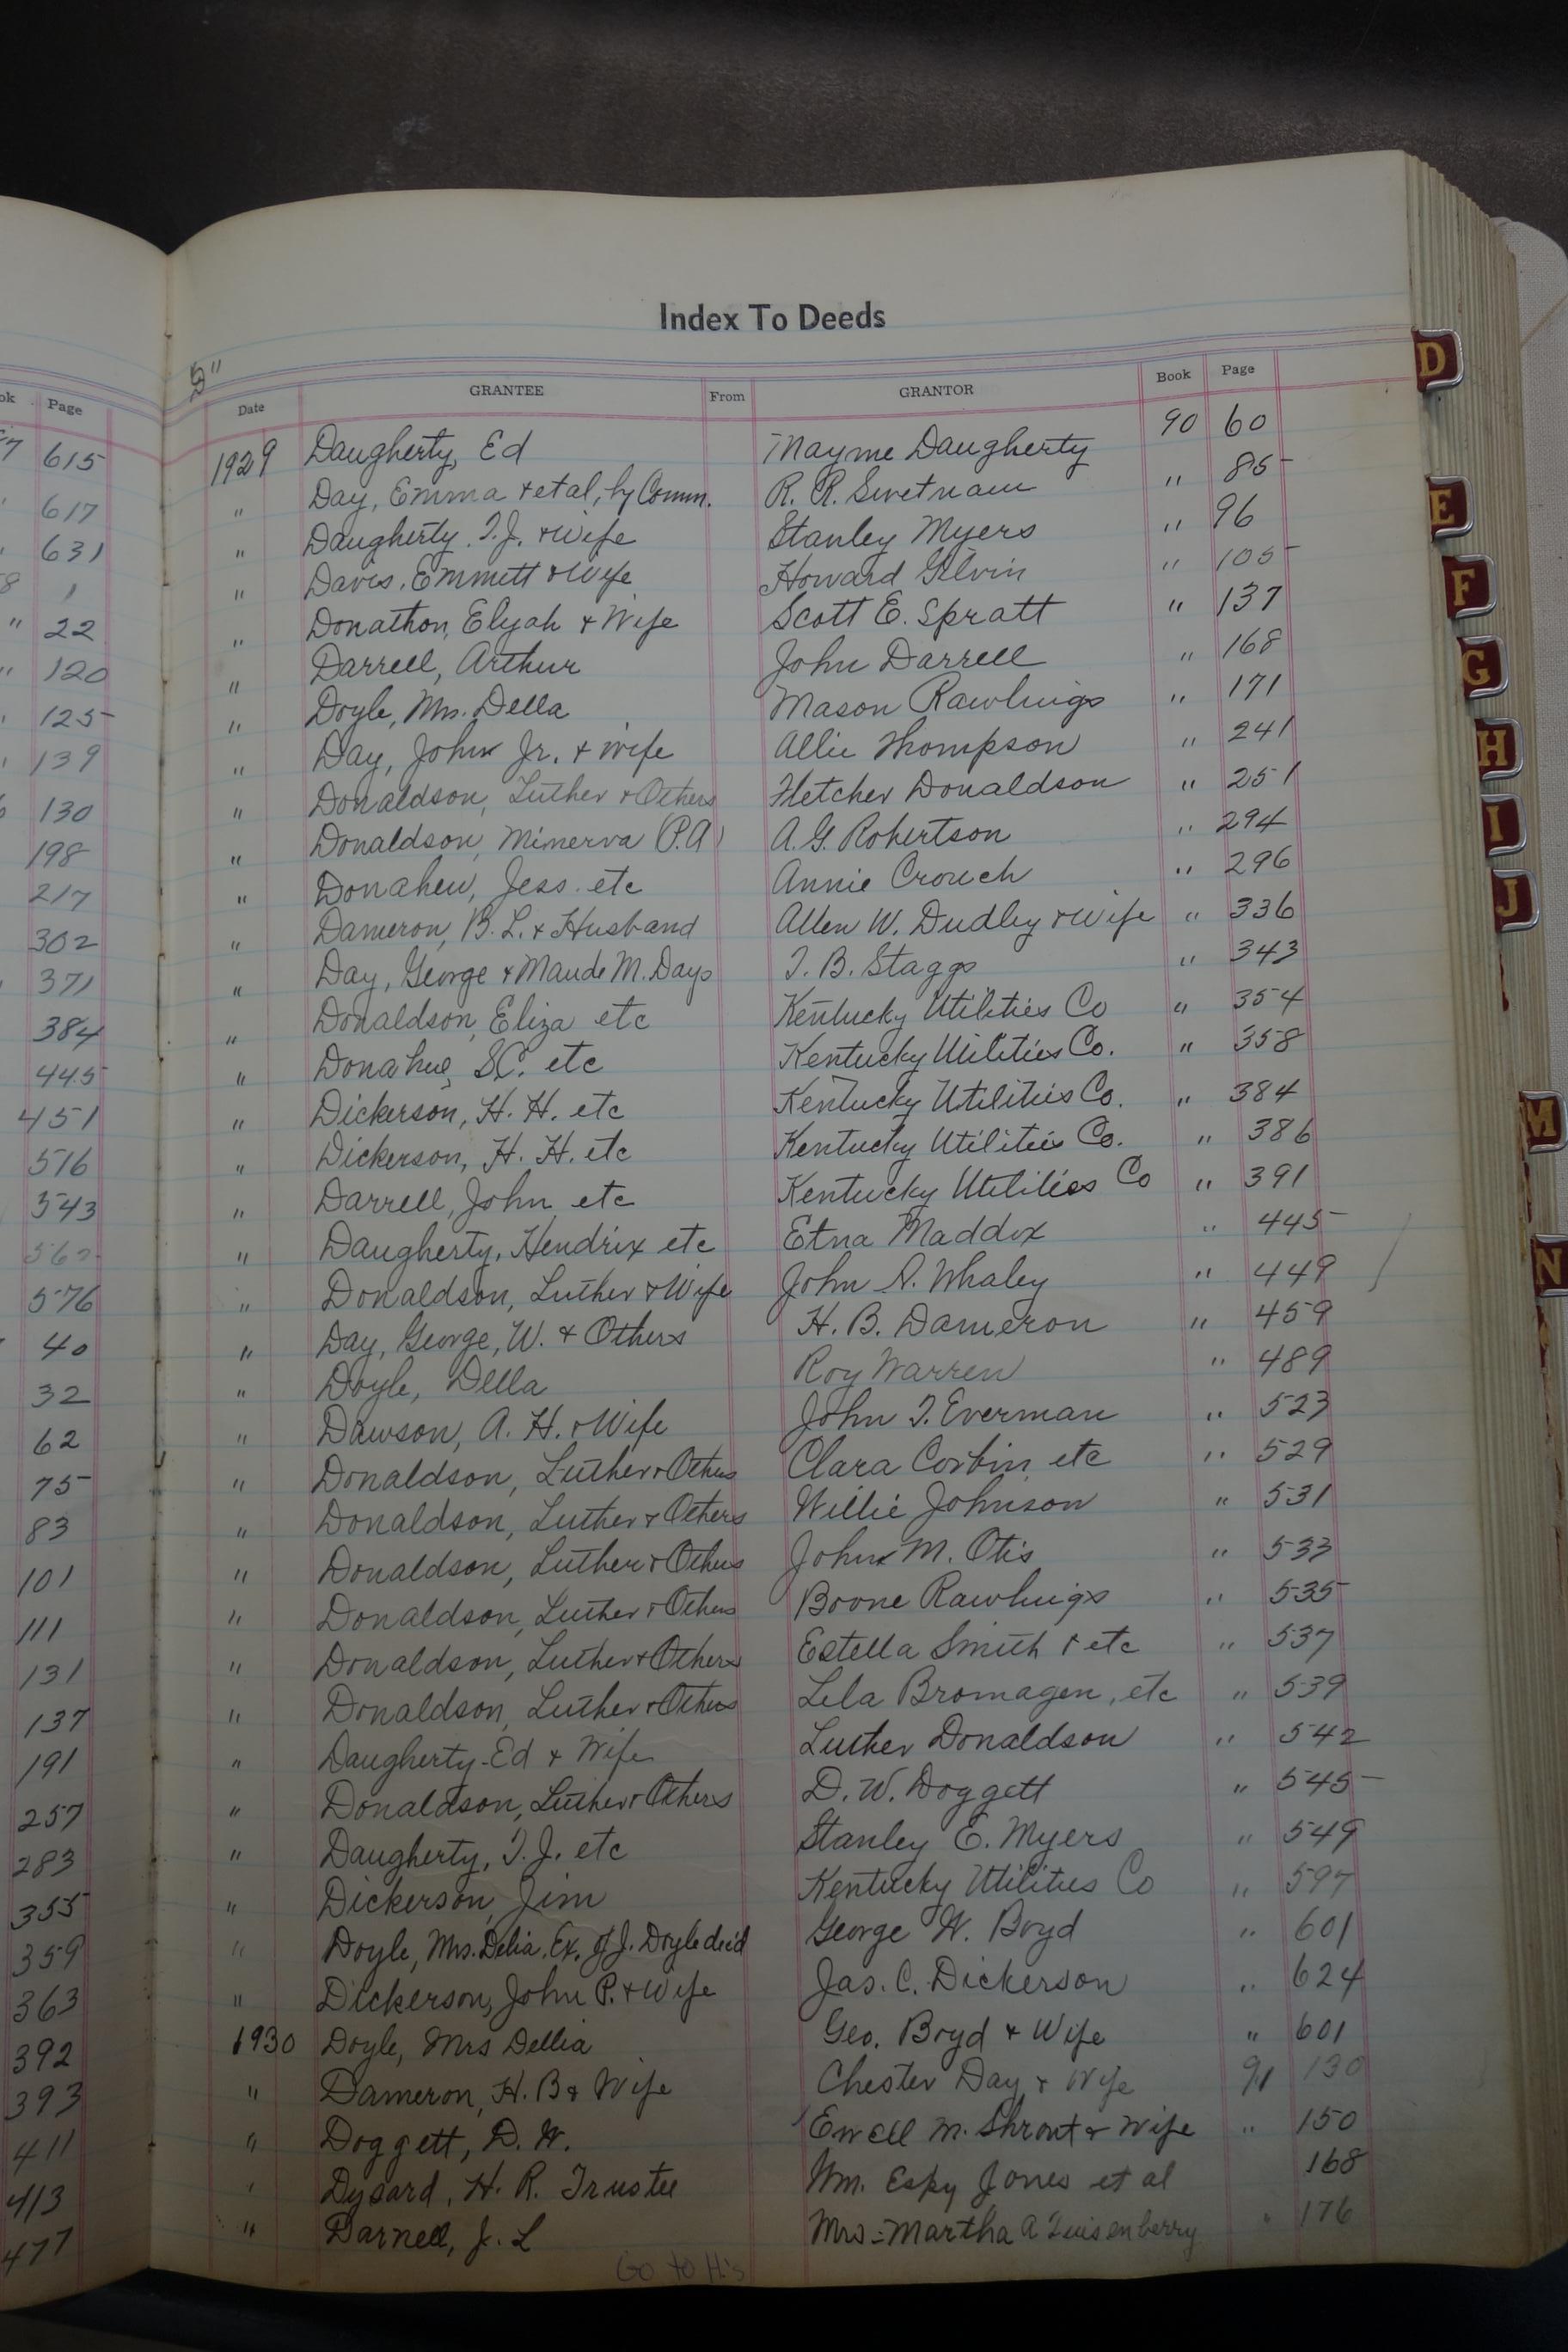 Index To Deeds
5"
Date GRANTEE From GRANTOR Book Page
1929 Daugherty, Ed Mayme Daugherty 90 60
" Day, Emma & et al, by Comm. R. R. Swetnam " 85
" Daugherty. T.J. & Wife Stanley Myers " 96
" Davis, Emmett & Wife Howard Gilvin " 105
" Donathon, Elijah & Wife Scott E. Spratt " 137
" Darrell, Arthur John Darrell " 168
" Doyle, Mrs. Della Mason Rawlings " 171
" Day, John Jr. & Wife Allie Thompson " 241
" Donaldson, Luther & Others Fletcher Donaldson " 251
" Donaldson, Minerva (P.A) A. G. Robertson " 294
" Donahew, Jess. etc Annie Crouch " 296
" Dameron, B. L. & Husband Allen W. Dudley & Wife " 336
" Day, George & Maude M. Days T. B. Staggs " 343
" Donaldson, Eliza etc Kentucky Utilities Co " 354
" Donahue, S.C. etc Kentucky Utilities Co. " 358
" Dickerson, H. H. etc Kentucky Utilities Co. " 384
" Dickerson, H. H. etc Kentucky Utilities Co. " 386
" Darrell, John etc Kentucky Utilities Co " 391
" Daugherty, Hendrix etc Etna Maddox " 445
" Donaldson, Luther & Wife John A. Whaley " 449
" Day, George, W. & Others H. B. Dameron " 459
" Doyle, Della Roy Warren " 489
" Dawson, A. H. & Wife John T. Everman " 523
" Donaldson, Luther & Others Clara Corbin etc " 529
" Donaldson, Luther & Others Willie Johnson " 531
" Donaldson, Luther & Others John M. Otis " 533
" Donaldson, Luther & Others Boone Rawlings " 535
" Donaldson, Luther & Others Estella Smith & etc " 537
" Donaldson, Luther & Others Lela Bromagen, etc " 539
" Daugherty-Ed & Wife Luther Donaldson " 542
" Donaldson, Luther & Others D. W. Doggett " 545
" Daugherty, T. J. etc Stanley E. Myers " 549
" Dickerson, Jim Kentucky Utilities Co " 597
" Doyle, Mrs. Delia, Ex. of J. Doyle dec'd George W. Boyd " 601
" Dickerson, John P. & Wife Jas. C. Dickerson " 624
1930 Doyle, Mrs Dellia Geo. Boyd & Wife " 601
" Dameron, H. B & Wife Chester Day & Wife 91 130
" Doggett, D. W. Ewell M. Shrout & Wife " 150
" Dysard, H. R. Trustee Wm. Espy Jones et al 168
" Darnell, J. L Mrs-Martha A Quisenberry " 176
Go to H's
ok Page
615
617
631
8 1
" 22
" 120
125
139
130
198
217
302
371
384
445
451
516
543
576
40
32
62
75
83
101
111
131
137
191
257
283
355
359
363
392
393
411
413
477
D
E
F
G
H
I
J
M
N